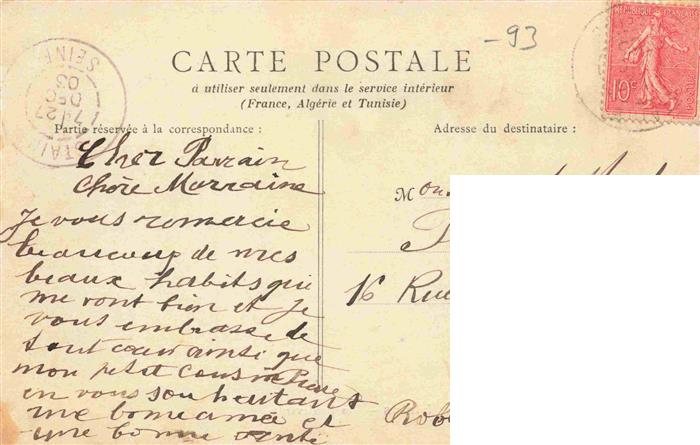 -93
CARTE POSTALE
à utiliser seulement dans le service intérieur
(France, Algérie et Tunisie)
Partie réservée à la correspondance :
Adresse du destinataire :
RÉPUBLIQUE FRANÇAISE
10c
SEINE
17 27
DEC
03
Cher Parrain
Chère Marraine
Je vous remercie
beaucoup de mes
beaux habits qui
me vont bien et Je
vous embrasse de
tout cœur ainsi que
mon petit cousin Pierre
en vous souheutant
une bonne année et
une bonne santé
Mon
16 Rue
Rob